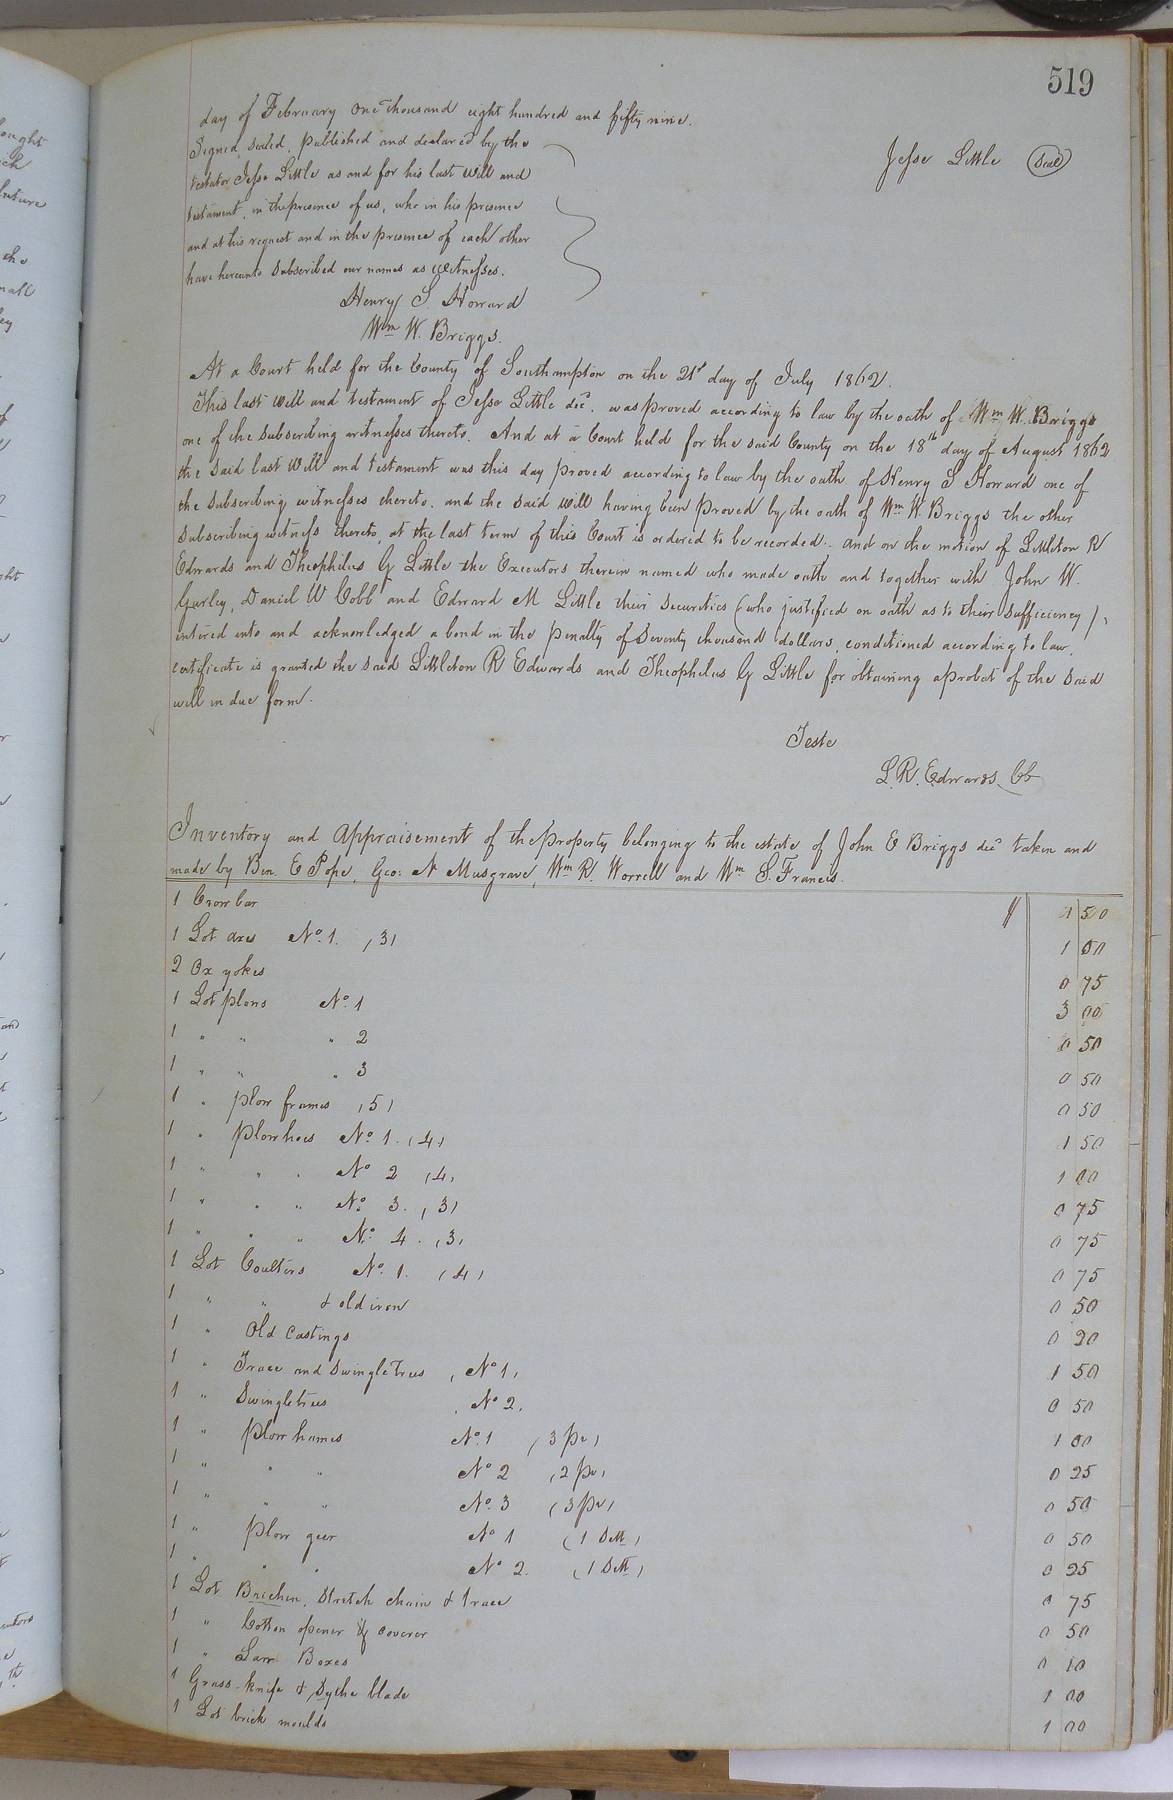 519
day of February One thousand eight hundred and fifty nine.
Signed, sealed, published and declared by the
testator Jesse Little as and for his last Will and
testament, in the presence of us, who in his presence
and at his request and in the presence of each other
have hereunto subscribed our names as witnesses.
Jesse Little Seal
Henry S. Howard
Wm W. Briggs.
At a Court held for the County of Southampton on the 21st day of July 1862.
This last will and testament of Jesse Little decd. was proved according to law by the oath of Wm W. Briggs
one of the subscribing witnesses thereto. And at a Court held for the said County on the 18th day of August 1862
the said last Will and testament was this day proved according to law by the oath of Henry S Howard one of
the subscribing witnesses thereto, and the said will having been proved by the oath of Wm W. Briggs the other
subscribing witness thereto, at the last term of this Court is ordered to be recorded: and on the motion of Littleton R
Edwards and Theophilus G Little the Executors therein named who made oath and together with John W.
Gurley, Daniel W Cobb and Edward M Little their securities (who justified on oath as to their sufficiency),
entered into and acknowledged a bond in the penalty of Seventy thousand dollars, conditioned according to law,
certificate is granted the said Littleton R Edwards and Theophilus G Little for obtaining a probat of the said
will in due form.
Teste
L. R. Edwards Cc
Inventory and Appraisement of the property belonging to the estate of John E Briggs decd taken and
made by Ben. E Pope, Geo: N Musgrave, Wm R. Worrell and Wm S. Francis.
1 Crow bar $ 1 50
1 Lot axes No. 1. (3) 1 00
2 Ox yokes 0 75
1 Lot plows No. 1 3 00
1 " " " 2 0 50
1 " " " 3 0 50
1 " plow frames (5) 0 50
1 " Plow hoes No. 1. (4) 1 50
1 " " " No 2 (4) 1 00
1 " " " No. 3. (3) 0 75
1 " " " No. 4. (3) 0 75
1 Lot Coulters No. 1. (4) 0 75
1 " " & old iron 0 50
1 " Old Castings 0 20
1 " Trace and Swingletrees (No 1) 1 50
1 " Swingletrees (No 2) 0 50
1 " Plow hames No. 1 (3 pr) 1 00
1 " " " No 2 (2 pr) 0 25
1 " " " No. 3 (3 pr) 0 50
1 " Plow geer No 1 (1 Sett) 0 50
1 " " " No 2. (1 Sett) 0 25
1 Lot Brichen, Stretch chain & trace 0 75
1 " Cotton opener & coverer 0 50
1 " Boxes 0 10
1 Grass-knife & Sythe blade 1 00
1 Lot brick moulds 1 00